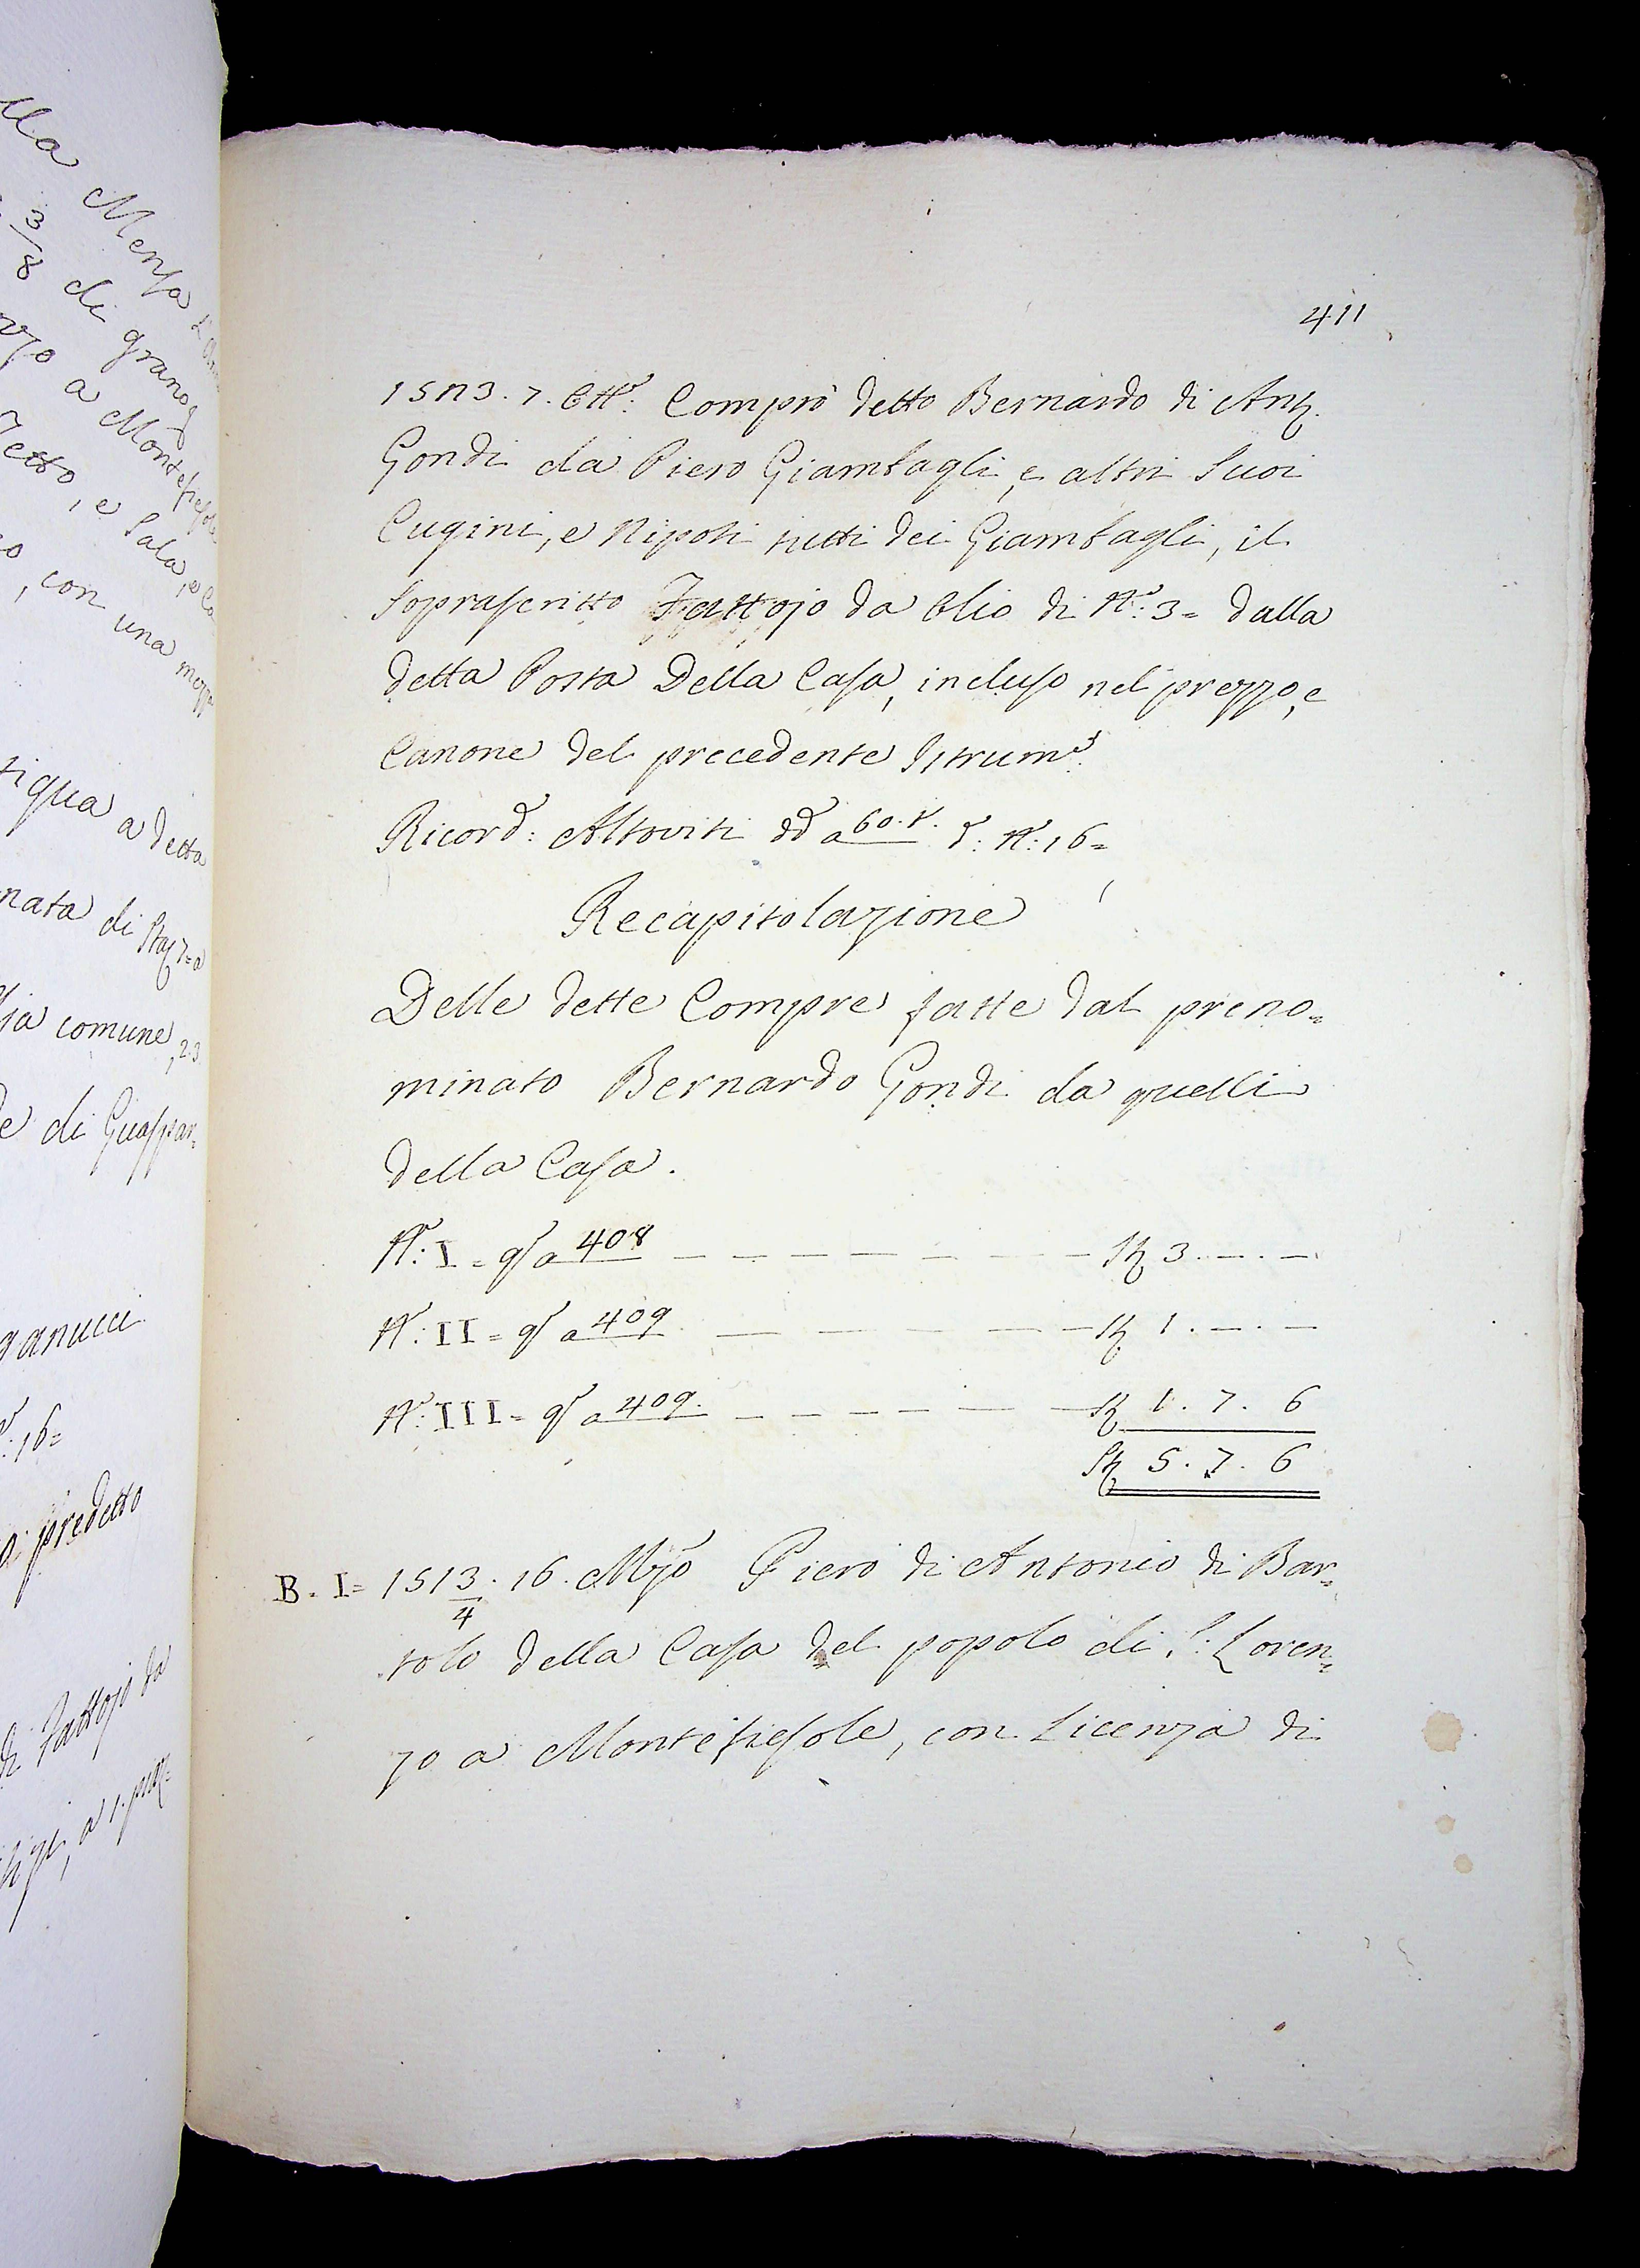 lla Mensa
3/8 di grano
a Montefiesole
Tetto, e Sala, e
, con una mezza
tigua a detta
nata di Staj 7= a
comune, 23
e di Guaspar=
ganucci
: 16=
predetto
di Fattojo da
411
1513. 7. Ott.e: Comprò detto Bernardo di Ant.
Gondi da Piero Giambagli, e altri Suoi
Cugini, e Nipoti tutti dei Giambagli, il
Soprascritto Fattojo da Olio di N.o: 3= dalla
detta Posta Della Casa, incluso nel prezzo, e
Canone del precedente Istrum.o
Ricord.: Altoviti dd a 60. t. d.: N.: 16=
Recapitolazione
Delle dette Compre fatte dal preno=
minato Bernardo Gondi da quelli
della Casa.
N.o: I = qsto a 408 — — — — — — — — St. 3. —. —.
N.o: II = qsto a 409 — — — — — St. 1. —. —
N.o: III = qsto a 409. — — — — — — St. 1. 7. 6
St. 5. 7. 6
B. I = 1513/4. 16. Mzo Piero di Antonio di Bar=
tolo della Casa del popolo di S.: Loren=
zo a Montefiesole, con Licenza di